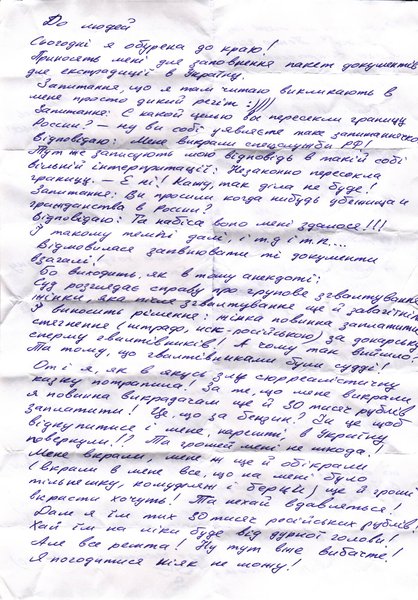 До людей
Сьогодні я обурена до краю!
Приносять мені для заповнення пакет документів
для екстрадиції в Україну.
Запитання, що я там читаю викликають в
мене просто дикий регіт :)))))
Запитання: С какой целью вы пересекли границу
России? – ну ви собі уявляєте таке запитаннєчко
Відповідаю: Мене викрали спецслужби РФ!
Тут же записують мою відповідь в такій собі
вільній інтерпритації: Незаконно пересекла
границу. – Е ні! Кажу, так діла не буде!
Запитання: Вы просили когда нибудь убежища и
гражданства в России?
Відповідаю: Та набіса воно мені здалося!!!
І такому темпі далі, і т.д і т.п...
Відмовилася заповнювати ті документи
взагалі!
Бо виходить, як в тому анекдоті:
Суд розглядає справу про групове зґвалтування
жінки, яка після зґвалтування ще й завагітніла
І виносить рішення: жінка повинна заплатити
стягнення (штраф, иск-російською) за донорську
сперму ґвалтівників! А чому так вийшло?
Та тому, що ґвалтівниками були судді!
От і я, як в якусь злу сюрреалістичну
казку потрапила! За те, що мене викрали
я повинна викрадачам ще й 30 тисяч рублів
заплатити! Це, що за бєнцик? За це щоб
відкупитися і мене, нарешті, в Україну
повернули!? Та грошей мені не шкода!
Мене вкрали, мене ж ще й обікрали
(вкрали в мене все, що на мені було
тільняшку, комуфляж і берці) ще й гроші
вкрасти хочуть! Та нехай вдавляться!
Дам я їм тих 30 тисяч російських рублів!
Хай їм на ліки буде від дурної голови!
Але все решта! Ну тут вже вибачте!
Я погодитися ніяк не можу!